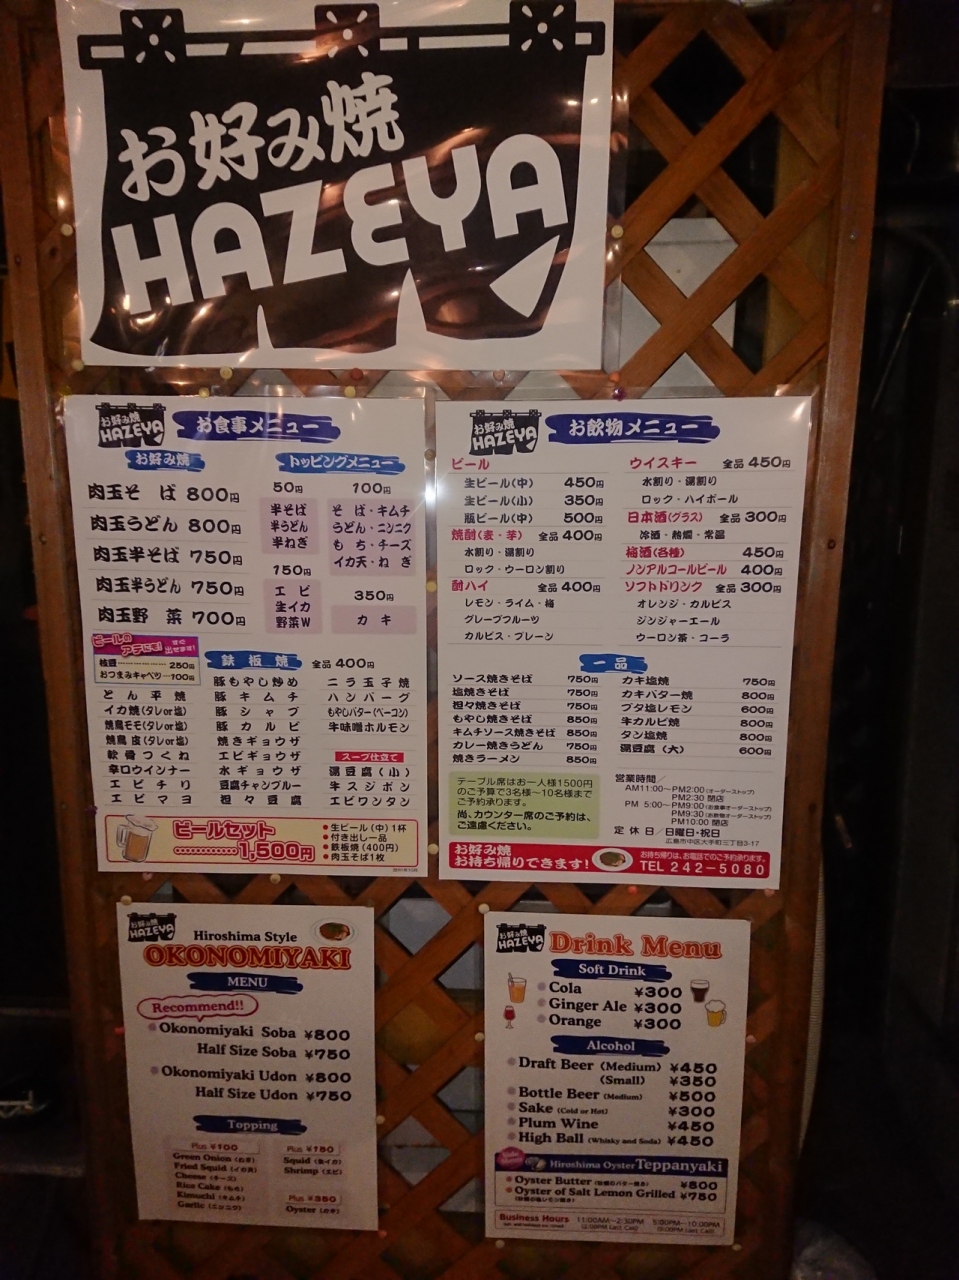 お好み焼
HAZEYA
お好み焼
HAZEYA
お食事メニュー
お好み焼
肉玉そ ば 800円
肉玉うどん 800円
肉玉半そば 750円
肉玉半うどん 750円
肉玉野 菜 700円
トッピングメニュー
50円
半そば
半うどん
半ねぎ
100円
そ ば・キムチ
うどん・ニンニク
も ち・チーズ
イカ天・ね ぎ
150円
エ ビ
生イカ
野菜W
350円
カ キ
ビールの
アテにも! すぐ出せます!
枝豆 250円
おつまみキャベツ 100円
鉄 板 焼 全品400円
と ん 平 焼
イカ焼(タレor塩)
焼鳥モモ(タレor塩)
焼鳥 皮(タレor塩)
軟 骨 つ く ね
辛口ウインナー
エ ビ チ リ
エ ビ マ ヨ
豚もやし炒め
豚 キ ム チ
豚 シ ャ ブ
豚 カ ル ビ
焼きギョウザ
エビギョウザ
水ギョウザ
豆腐チャンプルー
担 々 豆 腐
ニ ラ 玉 子 焼
ハ ン バ ー グ
もやしバター(ベーコン)
牛味噌ホルモン
スープ仕立て
湯豆腐(小)
牛スジポン
エビワンタン
ビールセット
1,500円
●生ビール(中)1杯
●付き出し一品
●鉄板焼(400円)
●肉玉そば1枚
お好み焼
HAZEYA
お飲物メニュー
ビール
生ビール(中) 450円
生ビール(小) 350円
瓶ビール(中) 500円
焼酎(麦・芋) 全品400円
水割り・湯割り
ロック・ウーロン割り
酎ハイ 全品400円
レモン・ライム・梅
グレープフルーツ
カルピス・プレーン
ウイスキー 全品450円
水割り・湯割り
ロック・ハイボール
日本酒(グラス) 全品300円
冷酒・熱燗・常温
梅酒(各種) 450円
ノンアルコールビール 400円
ソフトドリンク 全品300円
オレンジ・カルピス
ジンジャーエール
ウーロン茶・コーラ
一 品
ソース焼きそば 750円
塩焼きそば 750円
担々焼きそば 750円
もやし焼きそば 850円
キムチソース焼きそば 850円
カレー焼きうどん 750円
焼きラーメン 850円
カキ塩焼 750円
カキバター焼 800円
ブタ塩レモン 600円
牛カルビ焼 800円
タン塩焼 800円
湯豆腐(大) 600円
テーブル席はお一人様1500円
のご予算で3名様〜10名様まで
ご予約承ります。
尚、カウンター席のご予約は、
ご遠慮ください。
営業時間/
AM11:00〜PM2:00(オーダーストップ)
PM2:30 閉店
PM 5:00〜PM9:00(お食事オーダーストップ)
PM9:30(お飲物オーダーストップ)
PM10:00 閉店
定 休 日/日曜日・祝日
広島市中区大手町三丁目3-17
お好み焼
お持ち帰りできます!
お持ち帰りは、お電話でのご予約承ります。
TEL 242-5080
お好み焼
HAZEYA
Hiroshima Style
OKONOMIYAKI
MENU
Recommend!!
Okonomiyaki Soba ¥800
Half Size Soba ¥750
Okonomiyaki Udon ¥800
Half Size Udon ¥750
Topping
Plus ¥100
Green Onion (ねぎ)
Fried Squid (イカ天)
Cheese (チーズ)
Rice Cake (もち)
Kimuchi (キムチ)
Garlic (ニンニク)
Plus ¥150
Squid (生イカ)
Shrimp (エビ)
Plus ¥350
Oyster (カキ)
お好み焼
HAZEYA
Drink Menu
Soft Drink
Cola ¥300
Ginger Ale ¥300
Orange ¥300
Alcohol
Draft Beer (Medium) ¥450
(Small) ¥350
Bottle Beer (Medium) ¥500
Sake (Cold or Hot) ¥300
Plum Wine ¥450
High Ball (Whisky and Soda) ¥450
Hiroshima Oyster Teppanyaki
Oyster Butter ¥800
Oyster of Salt Lemon Grilled ¥750
Business Hours 11:00AM〜2:30PM 5:00PM〜10:00PM